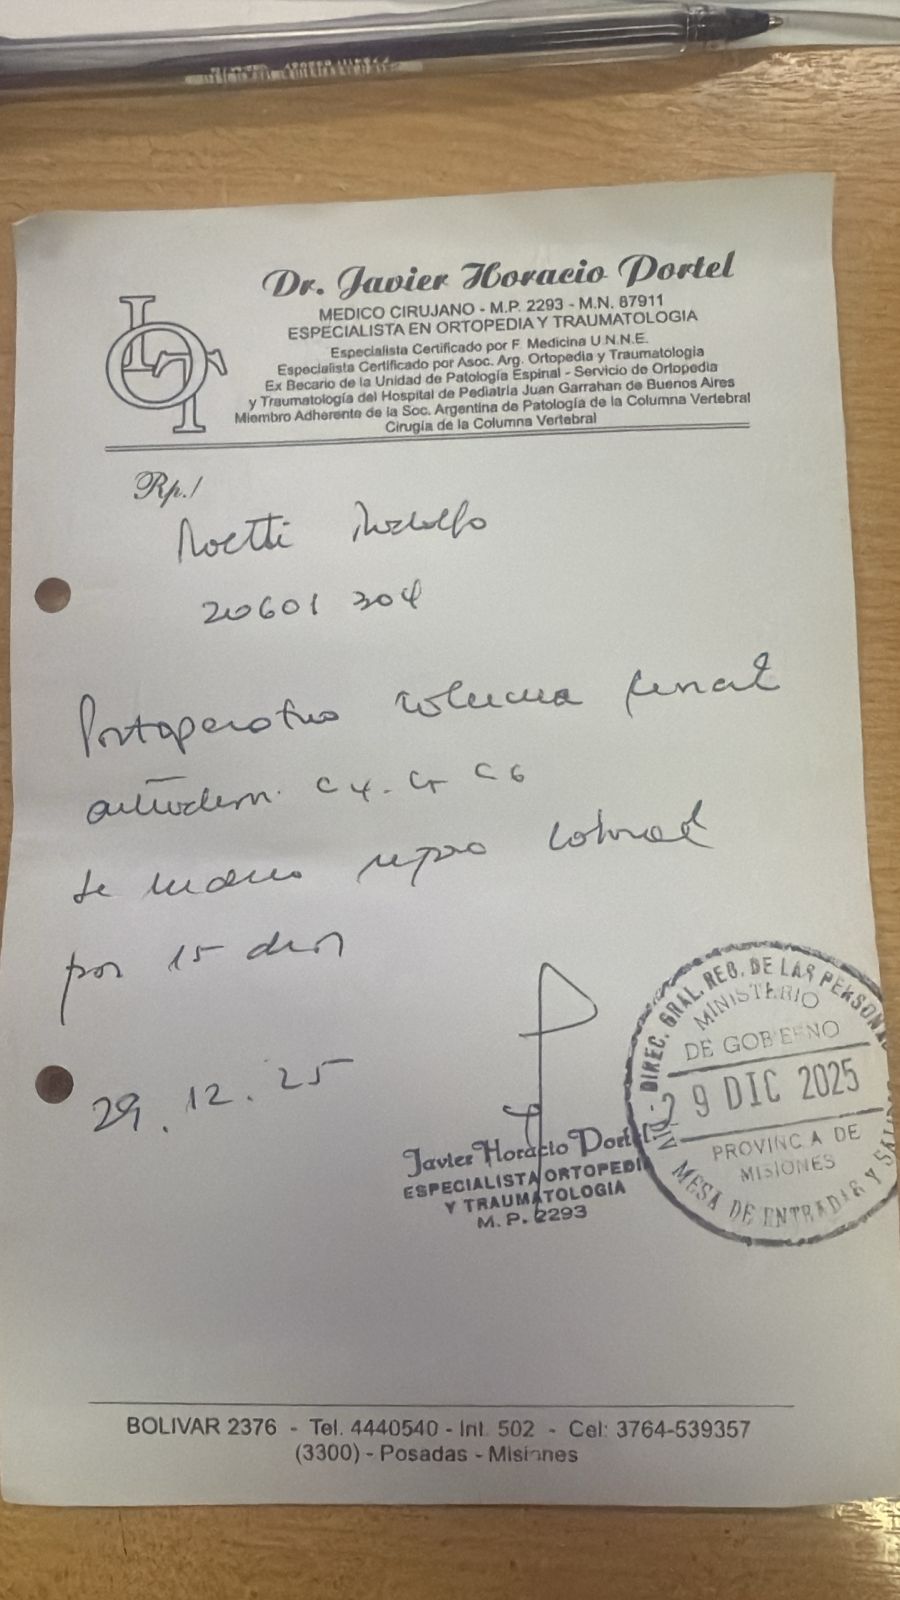 Dr. Javier Horacio Portel
MEDICO CIRUJANO - M.P. 2293 - M.N. 87911
ESPECIALISTA EN ORTOPEDIA Y TRAUMATOLOGIA
Especialista Certificado por F. Medicina U.N.N.E.
Especialista Certificado por Asoc. Arg. Ortopedia y Traumatología
Ex Becario de la Unidad de Patología Espinal - Servicio de Ortopedia
y Traumatología del Hospital de Pediatria Juan Garrahan de Buenos Aires
Miembro Adherente de la Soc. Argentina de Patología de la Columna Vertebral
Cirugía de la Columna Vertebral
Rp./
Noetti Rodolfo
20601 304
Postoperatorio columna
C4. C5 C6
se indica reposo laboral
por 15 dias
29.12.25
Javier Horacio Portel
ESPECIALISTA ORTOPEDIA
Y TRAUMATOLOGIA
M. P. 2293
DIREC. GRAL. REG. DE LAS PERSONAS
MINISTERIO
DE GOBIERNO
29 DIC 2025
PROVINCIA DE
MISIONES
MESA DE ENTRADAS Y SALIDAS
BOLIVAR 2376 - Tel. 4440540 - Int. 502 - Cel: 3764-539357
(3300) - Posadas - Misiones